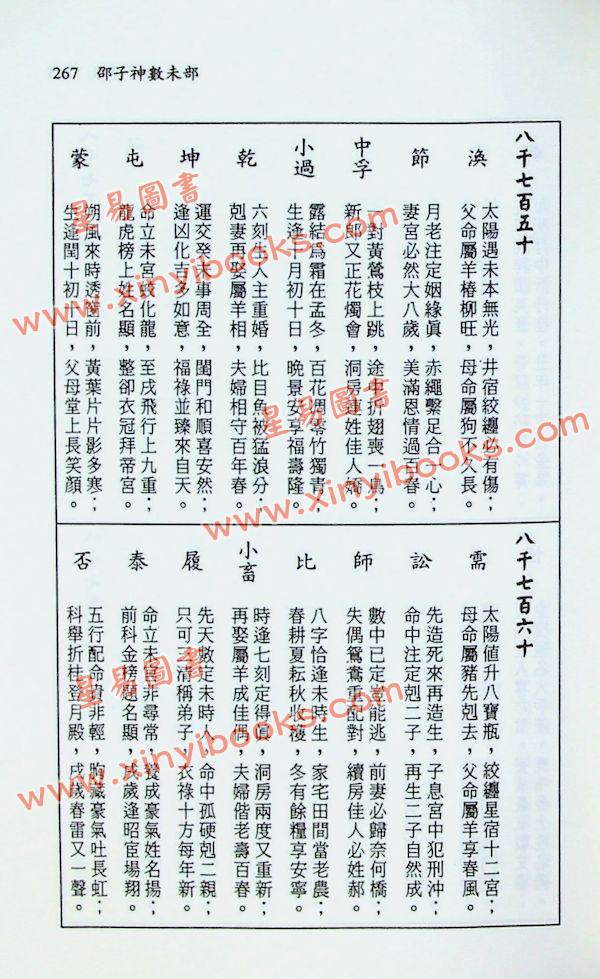 267 邵子神數未部
八千七百五十
渙
太陽遇未本無光，井宿絞纏必有傷；
父命屬羊椿柳旺，母命屬狗不久長。
節
月老注定姻緣真，赤繩繫足合一心；
妻宮必然大八歲，美滿恩情過百春。
中孚
一對黃鶯枝上跳，途中折翅喪一鳥；
新郎又正花燭會，洞房連姓佳人嬌。
小過
露結為霜在孟冬，百花凋零竹獨青；
生逢十月初十日，晚景安享福壽隆。
乾
六刻生人主重婚，比目魚被猛浪分；
剋妻再娶屬羊相，夫婦相守百年春。
坤
運交癸未事周全，閨門和順喜安然；
逢凶化吉多如意，福祿並臻來自天。
屯
命立未宮蛟化龍，至戌飛行上九重；
龍虎榜上姓名顯，整卻衣冠拜帝宮。
蒙
朔風來時透窗前，黃葉片片影多寒；
生逢閏十初日，父母堂上長笑顏。
八千七百六十
需
太陽值升八寶瓶，絞纏星宿十二宮；
母命屬豬先剋去，父命屬羊享春風。
訟
先造死來再造生，子息宮中犯刑沖；
命中注定剋二子，再生二子自然成。
師
數中已定豈能逃，前妻必歸奈何橋；
失偶鴛鴦重配對，續房佳人必姓郝。
比
八字恰逢未時生，家宅田間當老農；
春耕夏耘秋收穫，冬有餘糧享安寧。
小畜
時逢七刻定得真，洞房兩度又重新；
再娶屬羊成佳偶，夫婦偕老壽百春。
履
先天數定未時人，命中孤硬剋二親；
只可三清稱弟子，衣祿十方每年新。
泰
命立未宮非尋常，養成豪氣姓名揚；
前科金榜題名顯，戌歲逢昭宦場翔。
否
五行配命貴非輕，胸藏豪氣吐長虹；
科舉折桂登月殿，戌歲春雷又一聲。
星易圖書
www.xinyibooks.com
星易圖書
www.xinyibooks.com
星易圖書
www.xinyibooks.com